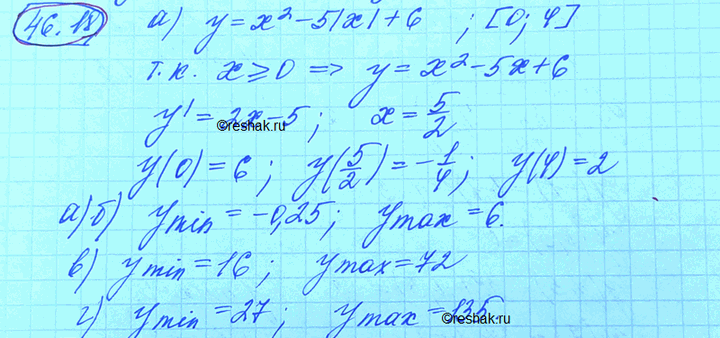 46.18 а) y = x² - 5|x| + 6 ; [0; 4]
т.к. x ≥ 0 => y = x² - 5x + 6
y' = 2x - 5 ; x = 5/2
reshak.ru
y(0) = 6 ; y(5/2) = -1/4 ; y(4) = 2
а) б) y min = -0,25 ; y max = 6.
в) y min = 16 ; y max = 72
г) y min = 27 ; y max = 135
reshak.ru